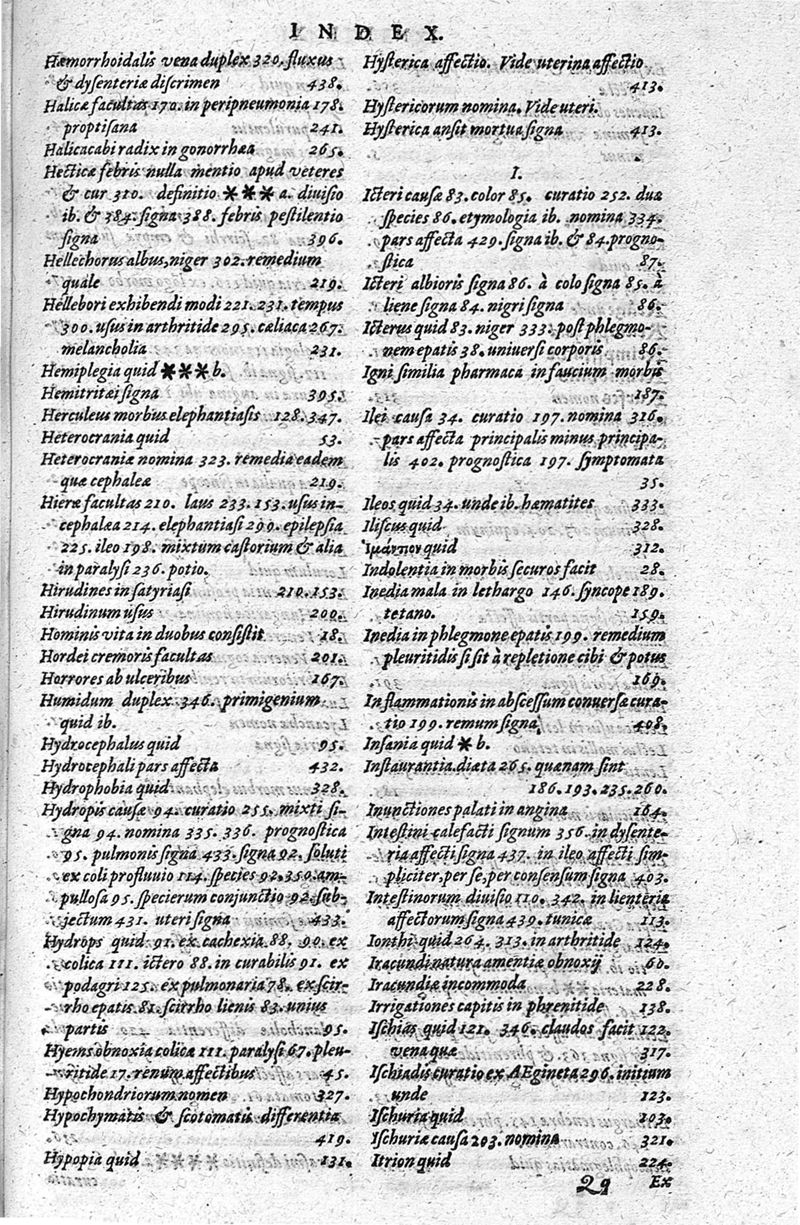 INDEX.
Hæmorrhoidalis vena duplex 320. fluxus
& dysenteriæ discrimen 438.
Halicæ facultas 170. in peripneumonia 178.
proptisana 241.
Halicacabi radix in gonorrhæa 265.
Hecticæ febris nulla mentio apud veteres
& cur 310. definitio *** a. divisio
ib. & 384. signa 388. febris pestilentio
signa 396.
Hellechorus albus, niger 302. remedium
quale 219.
Hellebori exhibendi modi 221. 231. tempus
300. usus in arthritide 295. cæliaca 267.
melancholia 231.
Hemiplegia quid *** b.
Hemitritæi signa 395.
Herculeus morbius elephantiasis 128. 347.
Heterocrania quid 53.
Heterocraniæ nomina 323. remedia eadem
quæ cephaleæ 219.
Hieræ facultas 210. laus 233. 153. usus in-
cephalæa 214. elephantiasi 299. epilepsia
225. ileo 198. mixtum castorium & alia
in paralysi 236. potio.
Hirudines in satyriasi 210. 153.
Hirudinum usus 200.
Hominis vita in duobus consistit 18.
Hordei cremoris facultas 201.
Horrores ab ulceribus 167.
Humidum duplex 346. primigenium
quid ib.
Hydrocephalus quid 95.
Hydrocephali pars affecta 432.
Hydrophobia quid 328.
Hydropis causæ 94. curatio 255. mixti si-
gna 94. nomina 335. 336. prognostica
95. pulmonis signa 433. signa 92. soluti
ex coli profluvio 114. species 92. 350. am-
pullosa 95. specierum conjunctio 92. sub-
jectum 431. uteri signa 433.
Hydrops quid 91. ex cachexia 88. 90. ex
colica 111. ictero 88. in curabilis 91. ex
podagri 125. ex pulmonaria 78. ex scir-
rho epatis 81. scirrho lienis 83. unius
partis 95.
Hyems obnoxia colicæ 111. paralysi 67. pleu-
ritide 17. renum affectibus 45.
Hypochondriorum nomen 327.
Hypochymatis & scotomatis differentia
419.
Hypopia quid 131.
Hysterica affectio. Vide uterina affectio
413.
Hystericorum nomina. Vide uteri.
Hysterica an sit mortua signa 413.
I.
Icteri causæ 83. color 85. curatio 252. duæ
species 86. etymologia ib. nomina 334.
pars affecta 429. signa ib. & 84. progno-
stica 87.
Icteri albioris signa 86. à colo signa 85. à
liene signa 84. nigri signa 86.
Icterus quid 83. niger 333. post phlegmo-
nem epatis 38. universi corporis 86.
Igni similia pharmaca in faucium morbis
187.
Ilei causa 34. curatio 197. nomina 316.
pars affecta principalis minus principa-
lis 402. prognostica 197. symptomata
35.
Ileos quid 34. unde ib. hæmatites 333.
Iliscus quid 328.
quid 312.
Indolentia in morbis securos facit 28.
Inedia mala in lethargo 146. syncope 189.
tetano. 159.
Inedia in phlegmone epatis 199. remedium
pleuritidis si sit à repletione cibi & potus
169.
Inflammationis in abscessum conversæ cura-
tio 199. remum signa 408.
Insania quid * b.
Instaurantia diæta 265. quænam sint
186. 193. 235. 260.
Inunctiones palati in angina 164.
Intestini calefacti signum 356. in dysente-
ria affecti signa 437. in ileo affecti sim-
pliciter, per se, per consensum signa 403.
Intestinorum divisio 110. 342. in lienteria
affectorum signa 439. tunicæ 113.
Ionthi quid 264. 313. in arthritide 124.
Iracundi natura amentiæ obnoxij 60.
Iracundiæ incommoda 228.
Irrigationes capitis in phrenitide 138.
Ischias quid 121. 346. claudos facit 122.
vena quæ 317.
Ischiadis curatio ex AEgineta 296. initium
unde 123.
Ischuria quid 103.
Ischuriæ causa 203. nomina 321.
Itrion quid 224.
2q Ex